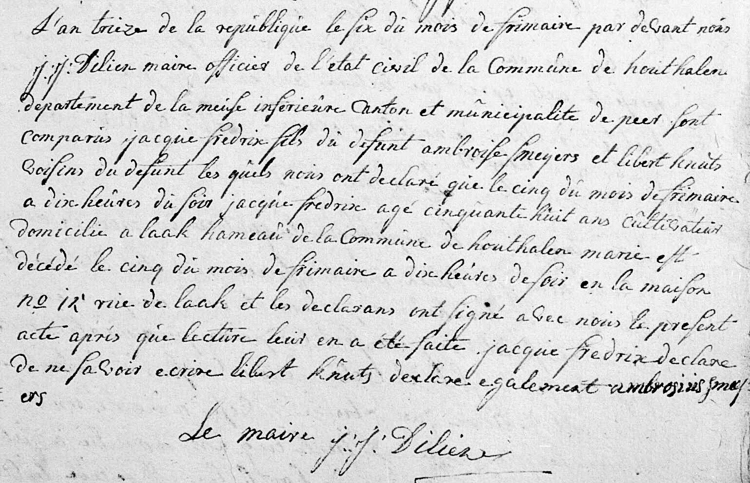 L'an treize de la republique le six du mois de frimaire par devant nous
J: J: Dilien maire officier de l'etat civil de la Commune de houthalen
departement de la meuse inferieure Canton et municipalite de peer sont
comparus jacque fredrix fils du defunt ambroise smeijers et libert knuts
voisins du defunt les quels nous ont declaré que le cinq du mois de frimaire
a dix heures du soir jacque fredrix agé cinquante huit ans cultivateur
domicilie a laak hameau de la Commune de houthalen marie est
décédé le cinq du mois de frimaire a dix heures de soir en la maison
no 12 rue de laak et les declarans ont signé avec nous le present
acte après que lecture leur en a été faite. jacque fredrix declare
de ne savoir ecrire libert knuts declare egalement ambrosius smeij-
ers
Le maire J: J: Dilien